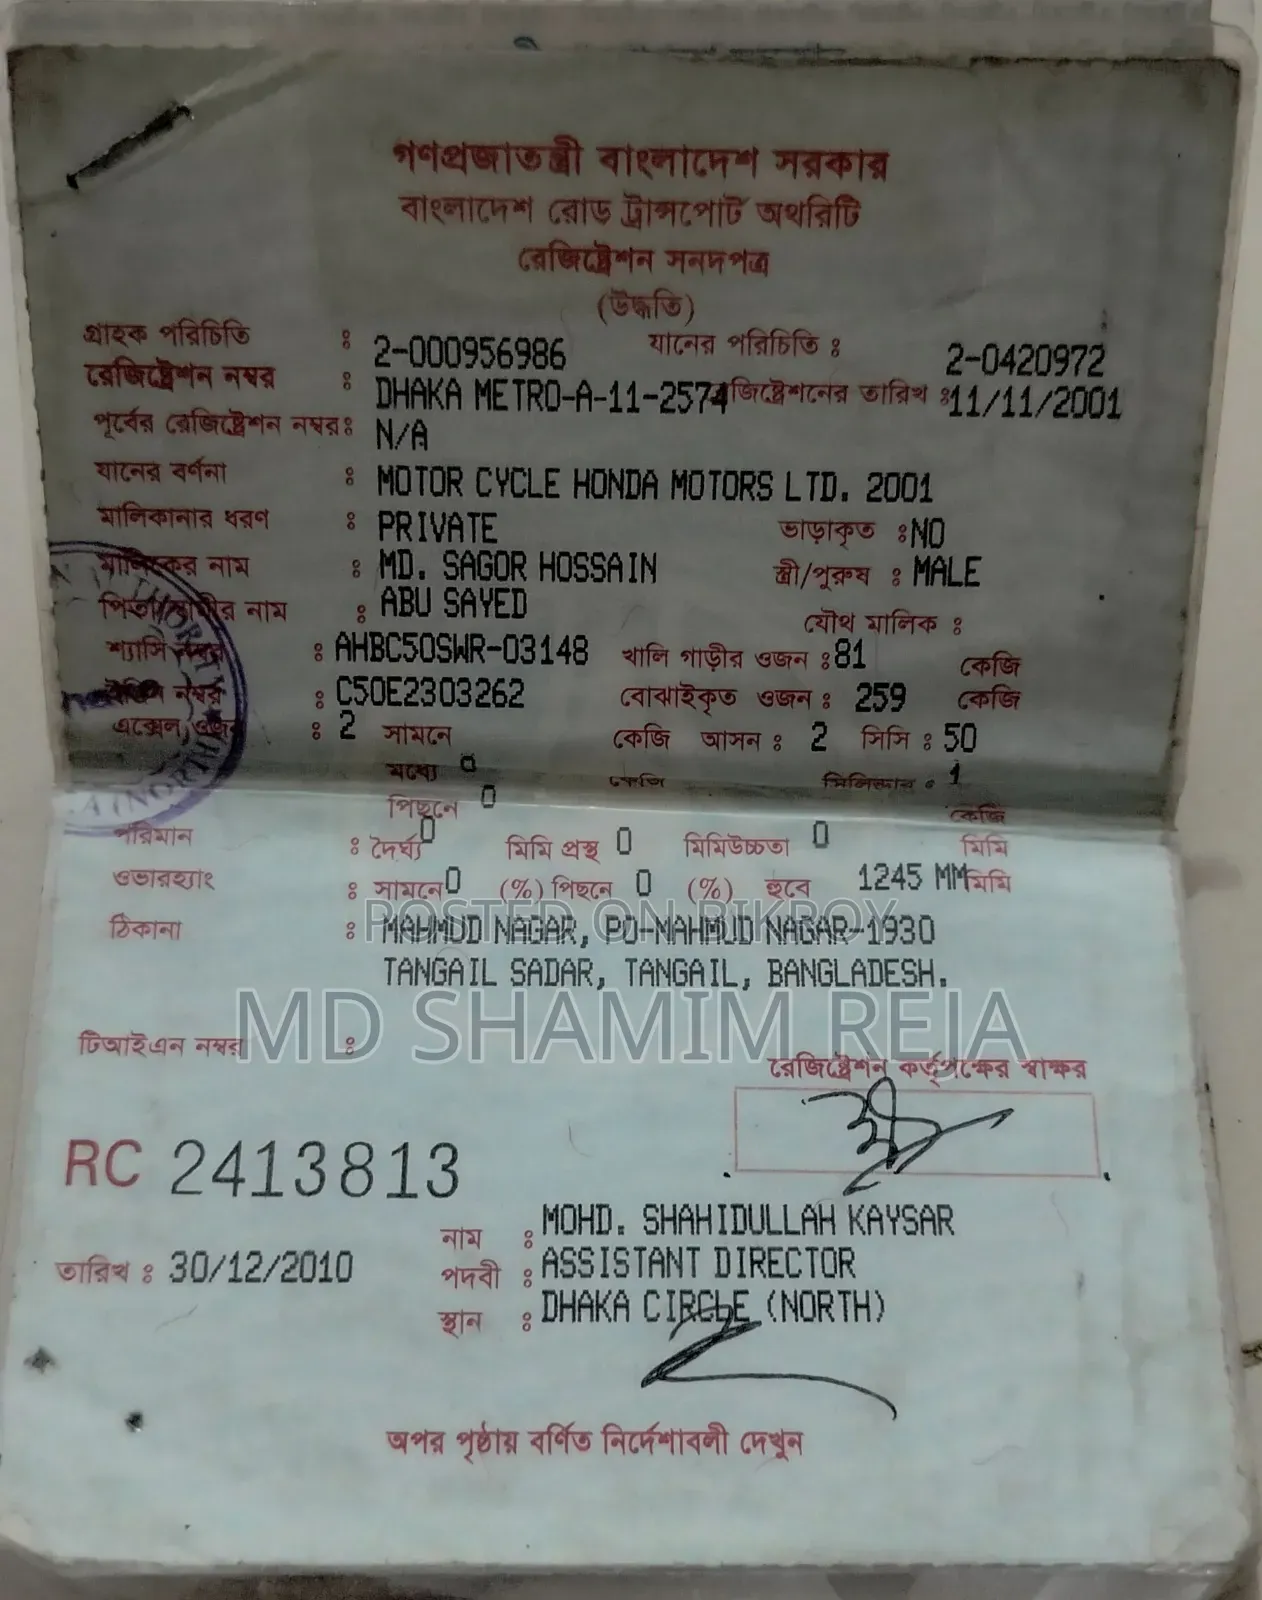 গণপ্রজাতন্ত্রী বাংলাদেশ সরকার
বাংলাদেশ রোড ট্রান্সপোর্ট অথরিটি
রেজিষ্ট্রেশন সনদপত্র
(উদ্ধৃতি)
গ্রাহক পরিচিতি : 2-000956986 যানের পরিচিতি : 2-0420972
রেজিষ্ট্রেশন নম্বর : DHAKA METRO-A-11-2574 রেজিষ্ট্রেশনের তারিখ : 11/11/2001
পূর্বের রেজিষ্ট্রেশন নম্বর : N/A
যানের বর্ণনা : MOTOR CYCLE HONDA MOTORS LTD. 2001
মালিকানার ধরণ : PRIVATE ভাড়াকৃত : NO
মালিকের নাম : MD. SAGOR HOSSAIN স্ত্রী/পুরুষ : MALE
পিতা/স্বামীর নাম : ABU SAYED যৌথ মালিক :
শ্যাসি নম্বর : AHBC50SWR-03148 খালি গাড়ীর ওজন : 81 কেজি
ইঞ্জিন নম্বর : C50E2303262 বোঝাইকৃত ওজন : 259 কেজি
এক্সেল ওজন : 2 সামনে কেজি আসন : 2 সিসি : 50
মধ্যে 0 কেজি সিলিন্ডার : 1
পিছনে 0 কেজি
পরিমান : দৈর্ঘ্য 0 মিমি প্রস্থ 0 মিমিউচ্চতা 0 মিমি
ওভারহ্যাং : সামনে 0 (%) পিছনে 0 (%) হুবে 1245 MM মিমি
ঠিকানা : MAHMUD NAGAR, PO-MAHMUD NAGAR-1930
POSTED ON BIKROY
TANGAIL SADAR, TANGAIL, BANGLADESH.
MD SHAMIM REJA
টিআইএন নম্বর :
রেজিষ্ট্রেশন কর্তৃপক্ষের স্বাক্ষর
RC 2413813
নাম : MOHD. SHAHIDULLAH KAYSAR
তারিখ : 30/12/2010 পদবী : ASSISTANT DIRECTOR
স্থান : DHAKA CIRCLE (NORTH)
অপর পৃষ্ঠায় বর্ণিত নির্দেশাবলী দেখুন